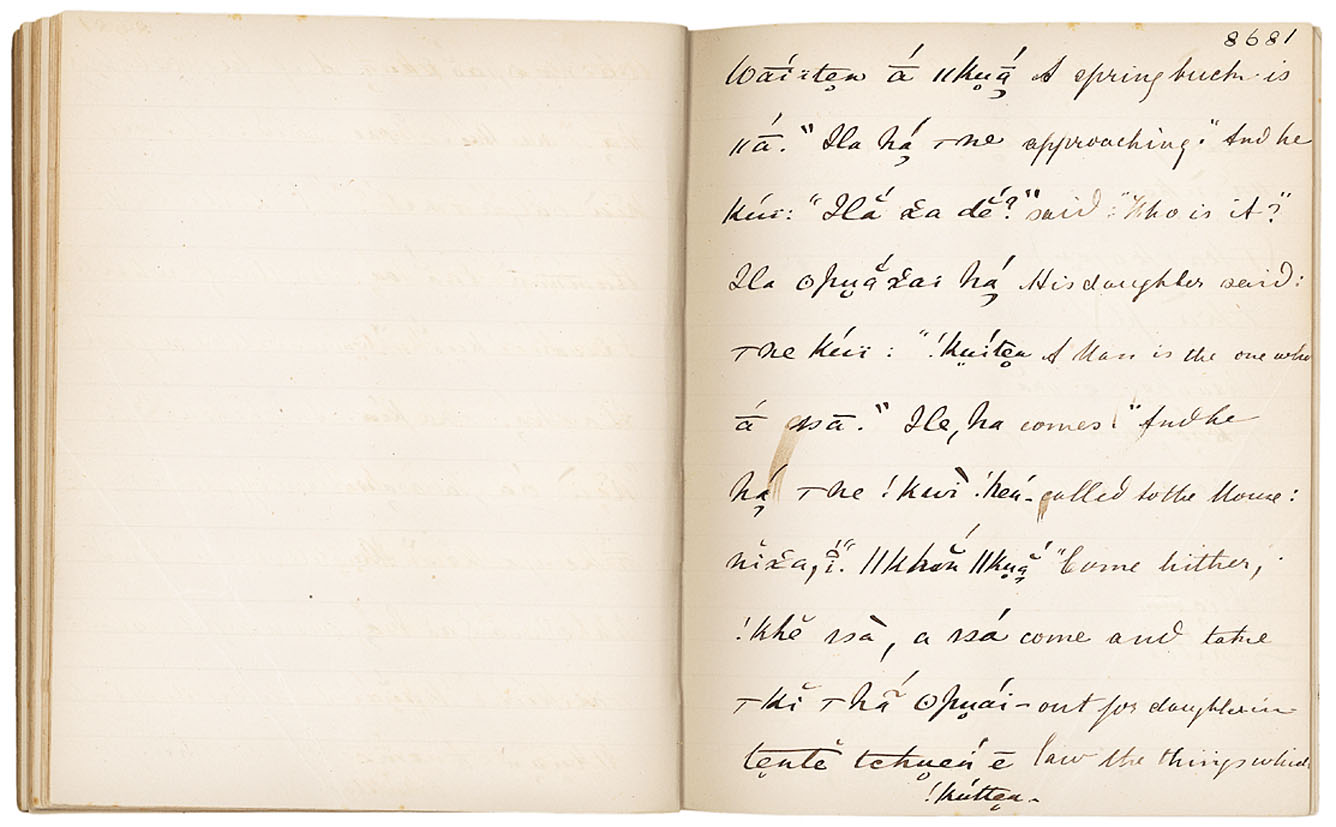 8681
Wāí-ten ā́ ǁkuā́ A springbuck is
ǁā́." Ila há ⊤ne approaching." And he
kúi: "Ilắ x̌a dĕ́?" said: "Who is it?"
Ila ʘpuắx̌ai há His daughter said:
⊤ne kúi: "!kuíten A Man is the one who
ā́ ssā." Ile, ha comes!" And he
há ⊤ne !kwì !hẹń- called to the Mouse:
ǁkhoń ǁkuắ "Come hither,
!khĕ ssà, a ssá come and take
⊤kĭ ⊤hã́ ʘpuái- out for daughter in
tentĕ tchuéń ē law the things which
!kúttẹn-